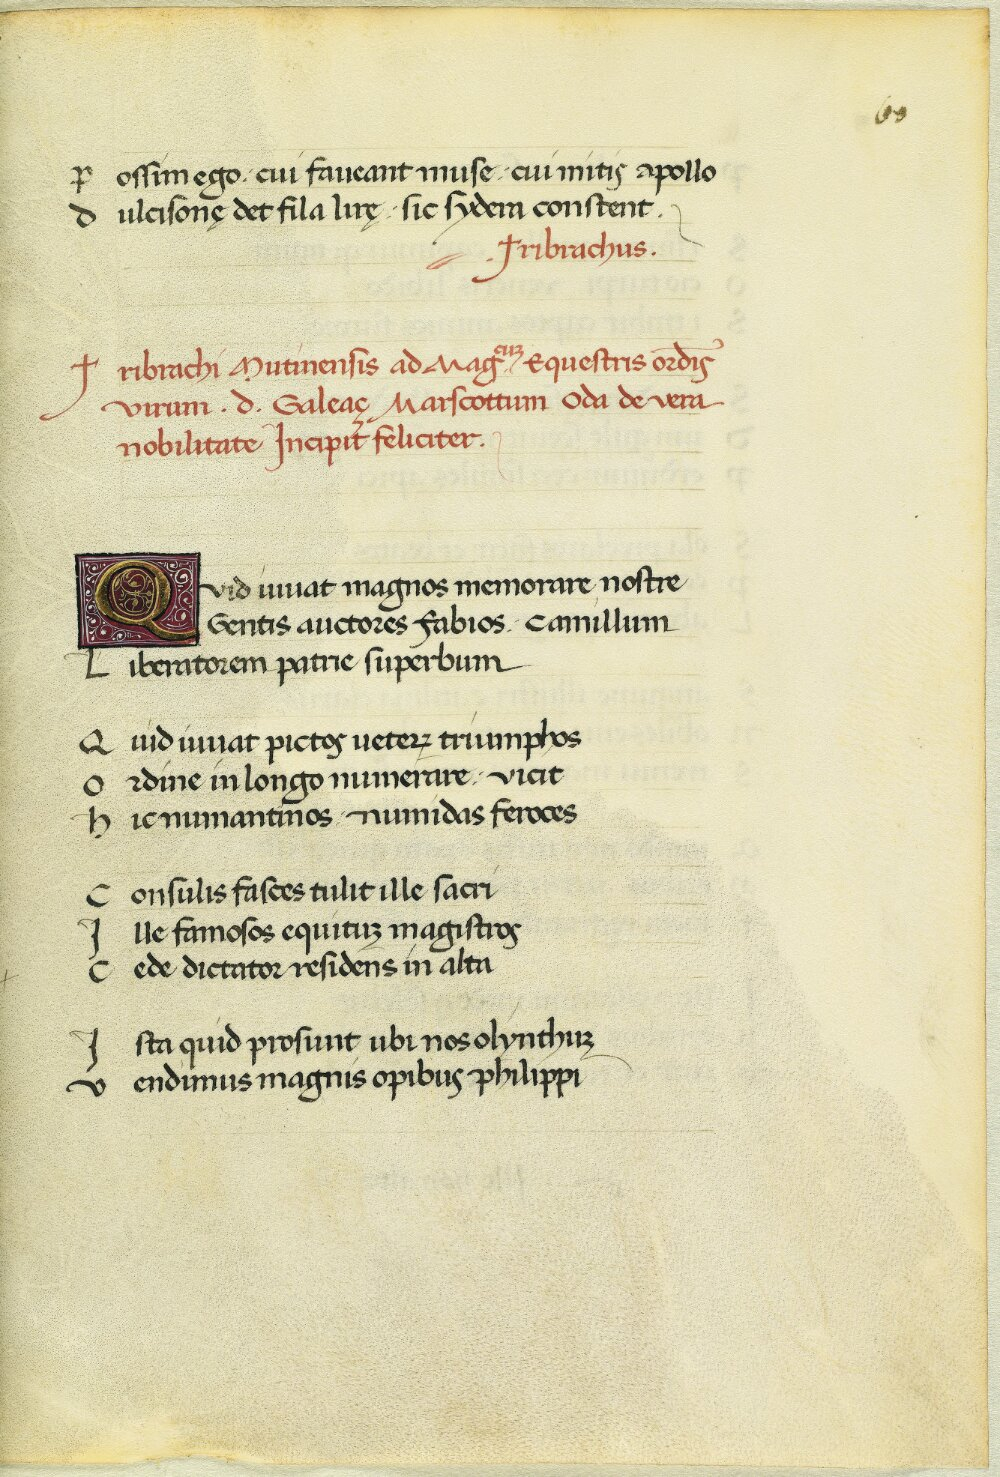 Possim ego. cui faveant muse. cui mitis apollo
Dulcisonę det fila lirę. sic sydera constent.
.Tribrachus.
Tribrachi Mutinensis ad Mag.cuꝫ Equestris ordīs
virum. d. Galeaę Marscottum Oda de vera
nobilitate Incipit feliciter.
Quid iuuat magnos memorare nostre
Gentis auctores fabios. Camillum
Liberatorem patrie superbum
Quid iuuat pictos ueterꝝ triumphos
Ordine in longo numerare. vicit
hic numantinos. numidas feroces
Consulis fasces tulit ille sacri
Ille famosos equituꝫ magistros
Cede dictator residens in alta
Ista quid prosunt ubi nos olynthuꝫ
vendimus magnis opibus philippi